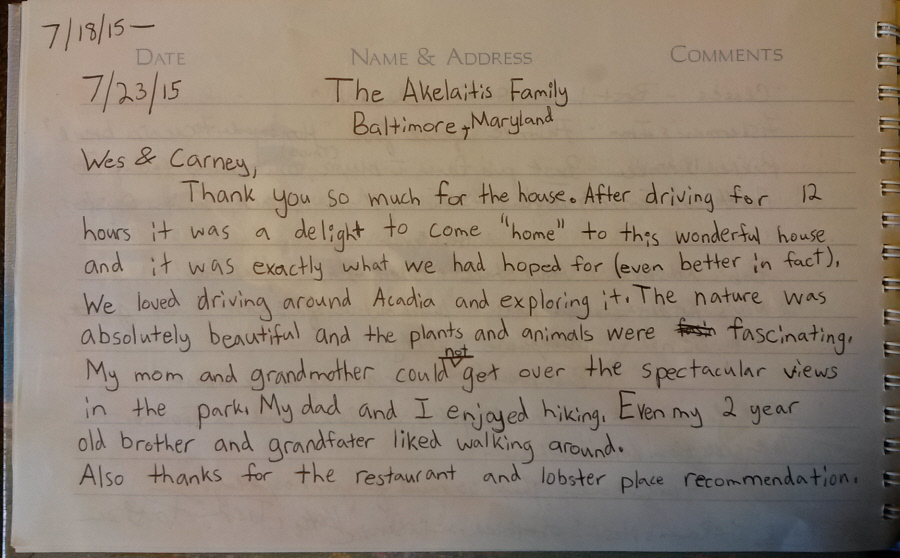 7/18/15—
DATE NAME & ADDRESS COMMENTS
7/23/15 The Akelaitis Family
Baltimore, Maryland
Wes & Carney,
Thank you so much for the house. After driving for 12
hours it was a delight to come "home" to this wonderful house
and it was exactly what we had hoped for (even better in fact).
We loved driving around Acadia and exploring it. The nature was
absolutely beautiful and the plants and animals were fascinating.
My mom and grandmother could not get over the spectacular views
in the park. My dad and I enjoyed hiking. Even my 2 year
old brother and grandfater liked walking around.
Also thanks for the restaurant and lobster place recommendation.